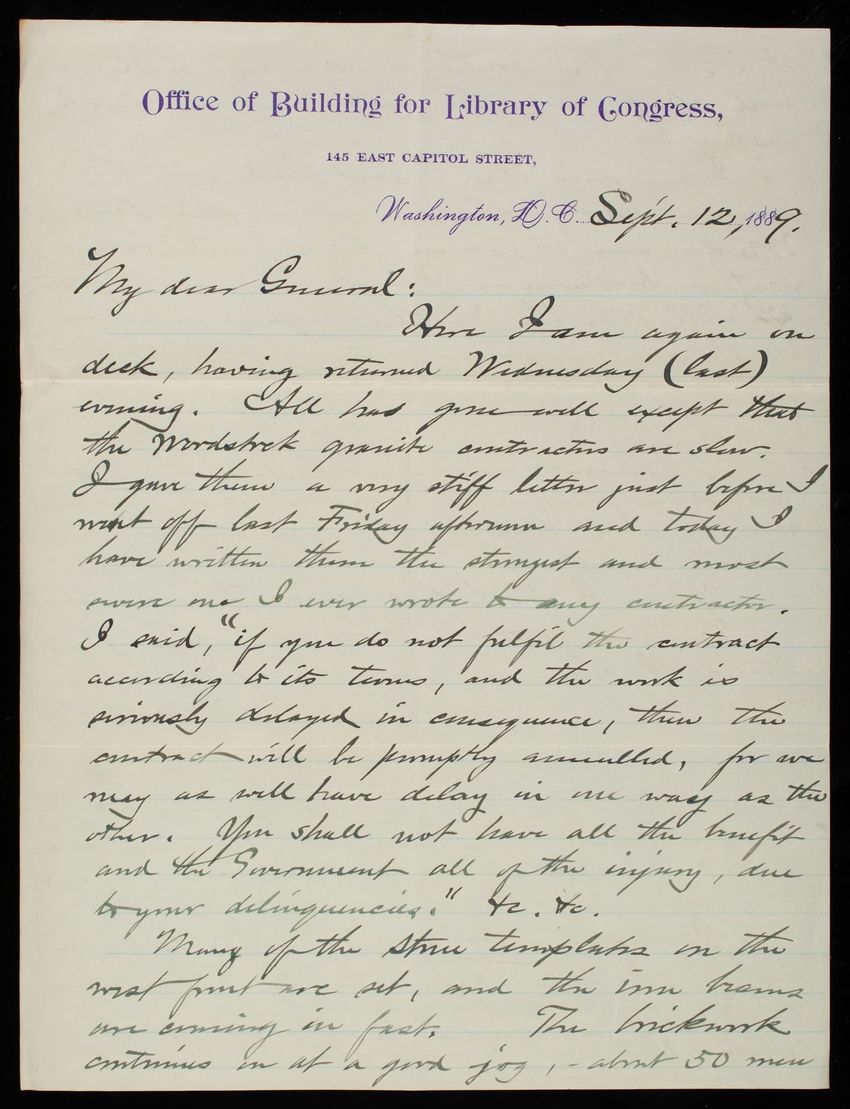 Office of Building for Library of Congress,
145 EAST CAPITOL STREET,
Washington, D. C. Sept. 12, 1889.
My dear General:
Here I am again on
deck, having returned Wednesday (last)
evening. All has gone well except that
the Woodstock granite contractors are slow.
I gave them a very stiff letter just before I
went off last Friday afternoon and today I
have written them the strongest and most
severe one I ever wrote to any contractor.
I said, "if you do not fulfil the contract
according to its terms, and the work is
seriously delayed in consequence, then the
contract will be promptly annulled, for we
may as well have delay in one way as the
other. You shall not have all the benefit
and the Government all of the injury, due
to your delinquencies." &c. &c.
Many of the stone templates on the
west front are set, and the iron beams
are coming in fast. The brickwork
continues on at a good jog, - about 50 men